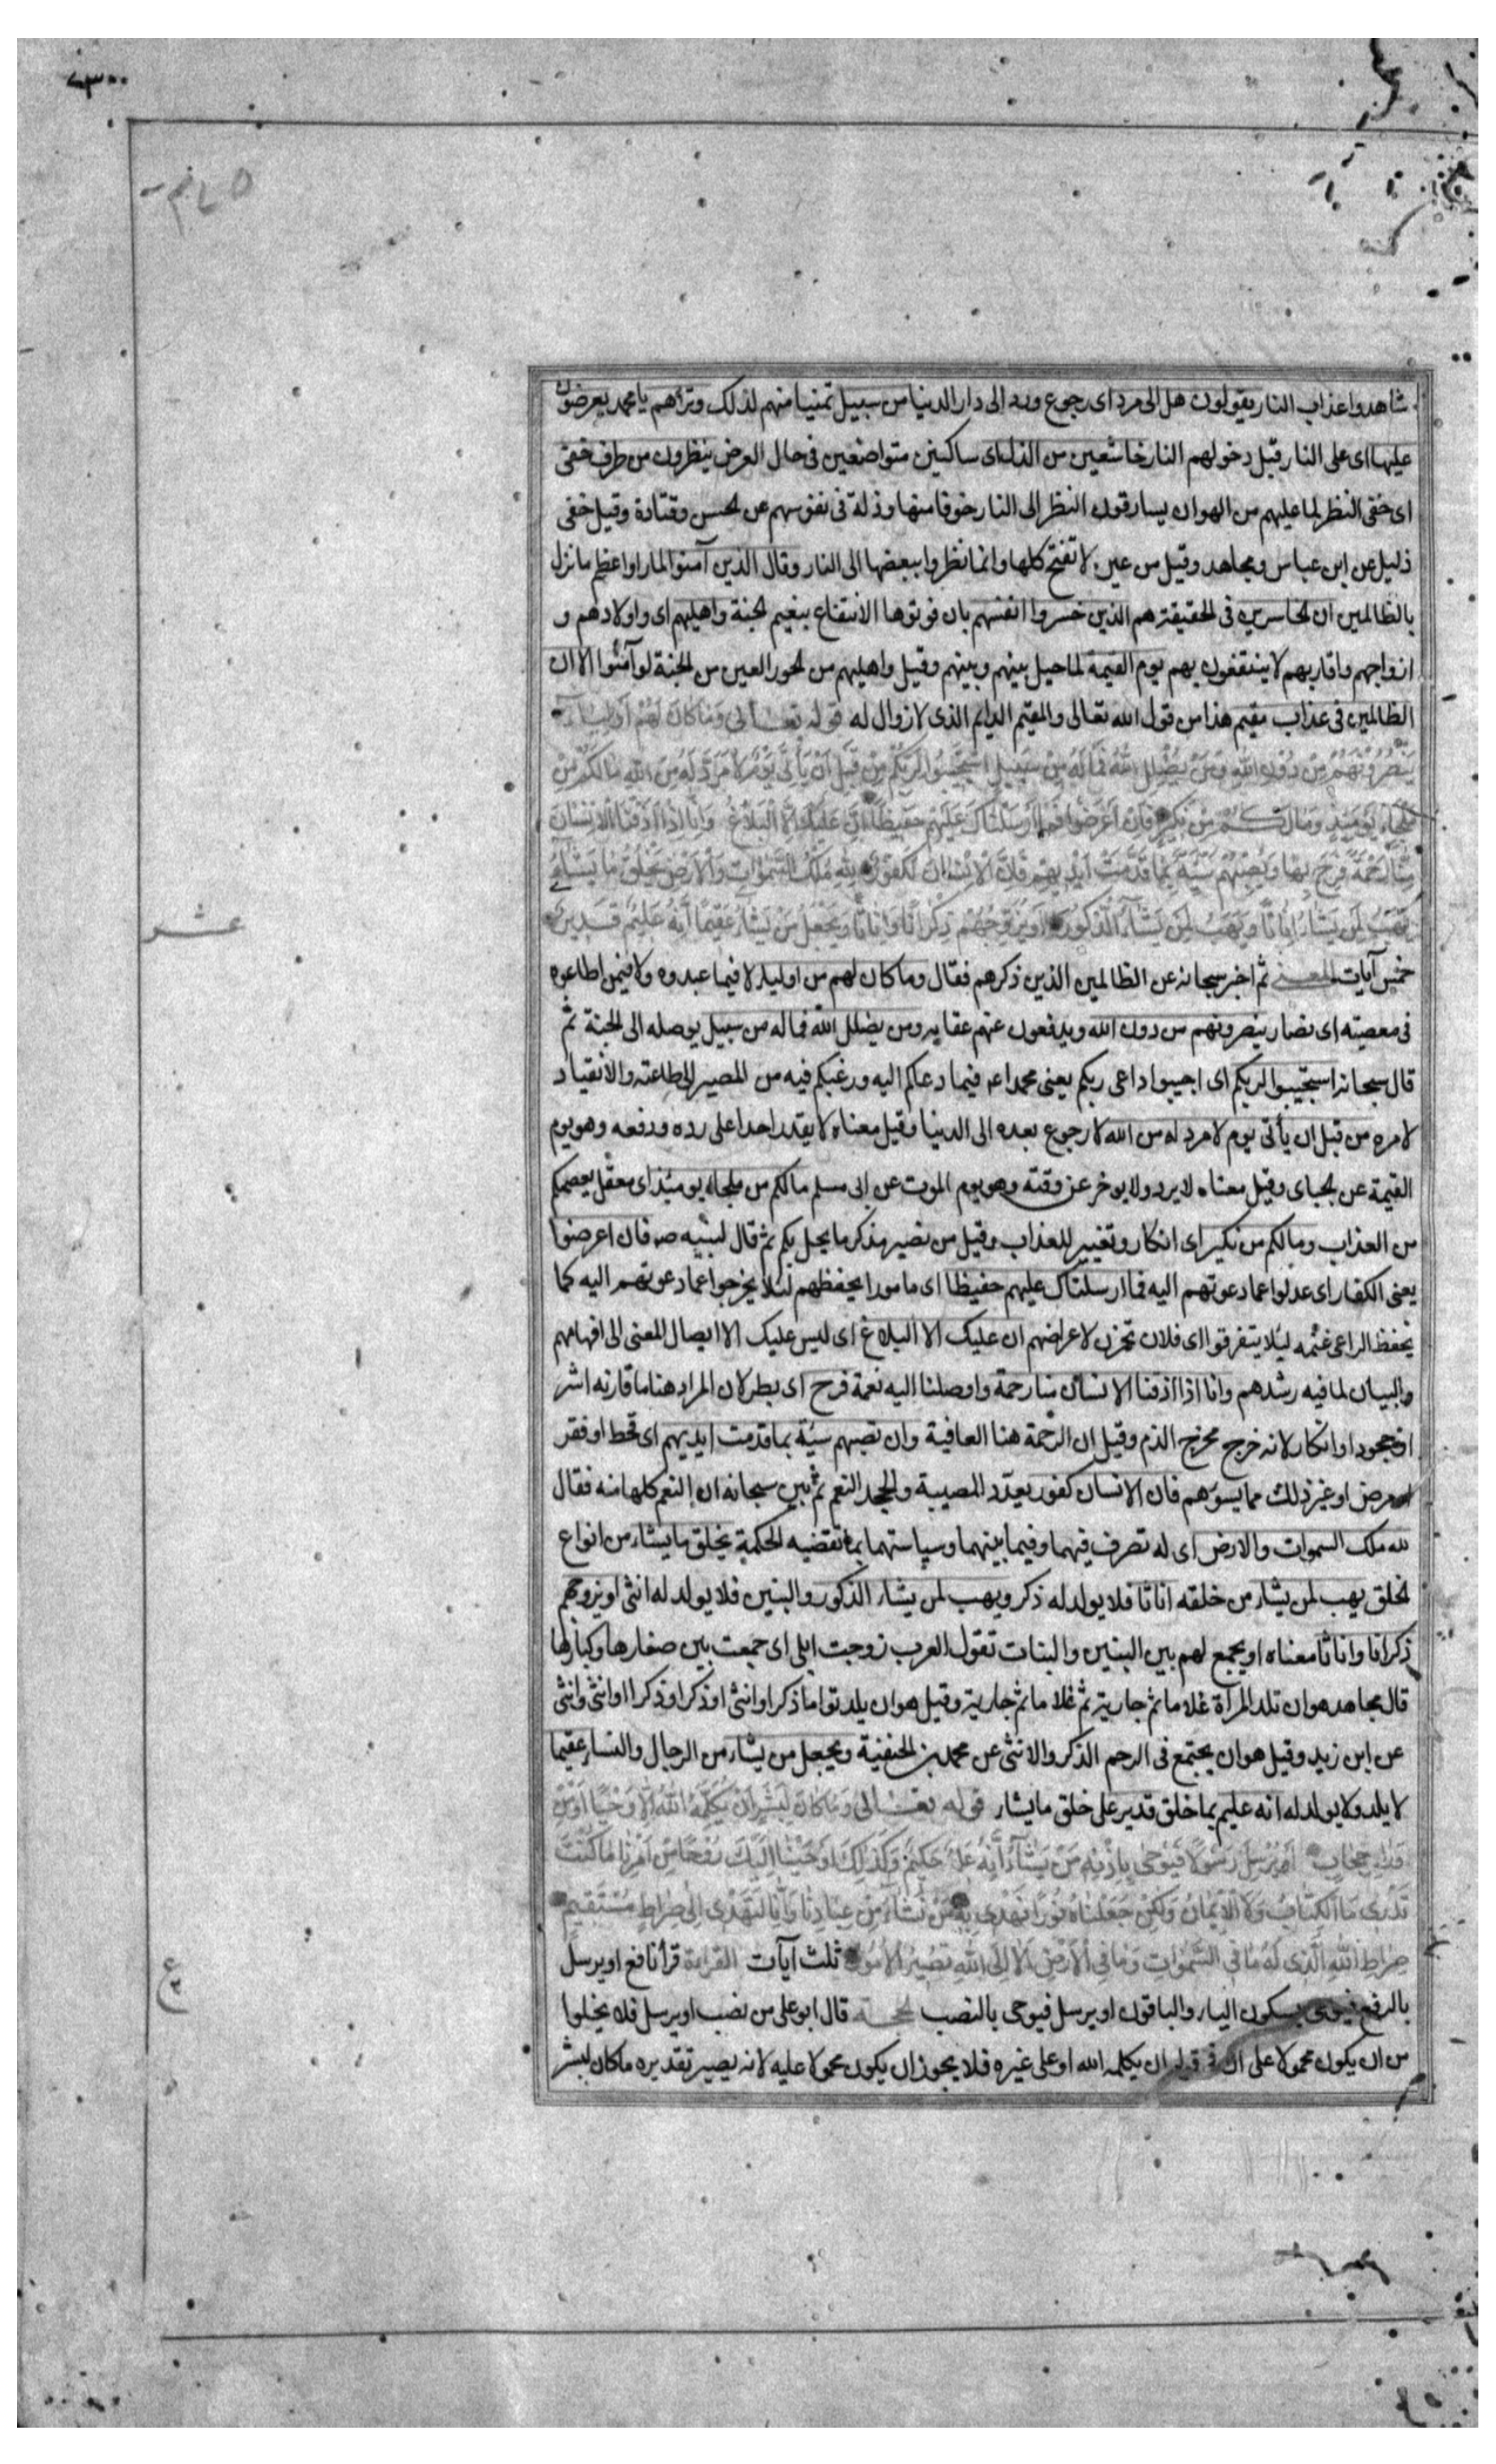 شاهدوا عذاب النار يقولون هل الى مرد اى رجوع ورد الى دار الدنيا من سبيل تمنيا منهم لذلك وتراهم يا محمد يعرضون
عليها اى على النار قبل دخولهم النار خاشعين من الذل اى ساكنين متواضعين فى حال العرض ينظرون من طرف خفى
اى خفى النظر لما عليهم من الهوان يسارقون النظر الى النار خوفا منها وذلة فى نفوسهم عن لحسن وقتادة وقيل خفى
ذليل عن ابن عباس ومجاهد وقيل من عين لا تفتح كلها وانما نظروا ببعضها الى النار وقال الذين آمنوا لما راوا عظيم ما نزل
بالظالمين ان لخاسرين فى لحقيقة هم الذين خسروا انفسهم بان فوتوها الانتفاع بنعيم لجنة واهليهم اى واولادهم و
ازواجهم واقاربهم لا ينتفعون بهم يوم القيمة لما حيل بينهم وبينهم وقيل واهليهم من لحور العين من الجنة لو آمنوا الا ان
الظالمين فى عذاب مقيم هذا من قول الله تعالى والمقيم الدايم الذى لا زوال له قوله تعالى وَمَا كَانَ لَهُمْ مِنْ اَوْلِيَاءَ
يَنْصُرُونَهُمْ مِنْ دُونِ اللهِ وَمَنْ يُضْلِلِ اللهُ فَمَا لَهُ مِنْ سَبِيلٍ اسْتَجِيبُوا لِرَبِّكُمْ مِنْ قَبْلِ اَنْ يَأْتِىَ يَوْمٌ لَا مَرَدَّ لَهُ مِنَ اللهِ مَا لَكُمْ مِنْ
مَلْجَاءٍ يَوْمَئِذٍ وَمَا لَكُمْ مِنْ نَكِيرٍ فَاِنْ اَعْرَضُوا فَمَا اَرْسَلْنَاكَ عَلَيْهِمْ حَفِيظًا اِنْ عَلَيْكَ اِلَّا الْبَلَاغُ وَاِنَّا اِذَا اَذَقْنَا الْاِنْسَانَ
مِنَّا رَحْمَةً فَرِحَ بِهَا وَاِنْ تُصِبْهُمْ سَيِّئَةٌ بِمَا قَدَّمَتْ اَيْدِيهِمْ فَاِنَّ الْاِنْسَانَ كَفُورٌ لِلهِ مُلْكُ السَّمٰوَاتِ وَالْاَرْضِ يَخْلُقُ مَا يَشَاءُ
يَهَبُ لِمَنْ يَشَاءُ اِنَاثًا وَيَهَبُ لِمَنْ يَشَاءُ الذُّكُورَ اَوْ يُزَوِّجُهُمْ ذُكْرَانًا وَاِنَاثًا وَيَجْعَلُ مَنْ يَشَاءُ عَقِيمًا اِنَّهُ عَلِيمٌ قَدِيرٌ
عشر
خمس آيات المعنى ثم اخبر سبحانه عن الظالمين الذين ذكرهم فقال وما كان لهم من اولياء لا فيما عبدوه ولا فيمن اطاعوه
فى معصيته اى نصار ينصرونهم من دون الله ويدفعون عنهم عقابه ومن يضلل الله فما له من سبيل يوصله الى لجنة ثم
قال سبحانه استجيبوا لربكم اى اجيبوا داعى ربكم يعنى محمدا عم فيما دعاكم اليه ورغبكم فيه من المصير الى طاعته والانقياد
لامره من قبل ان يأتى يوم لا مرد له من الله لا رجوع بعده الى الدنيا وقيل معناه لا يقدر احدا على رده ودفعه وهو يوم
القيمة عن لجباى وقيل معناه لا يرد ولا يوخر عن وقته وهو يوم الموت عن ابى مسلم ما لكم من ملجاء يومئذ اى معقل يعصمكم
من العذاب وما لكم من نكير اى انكار وتغيير للعذاب وقيل من نصير منكر ما يحل بكم ثم قال لنبيه ص فان اعرضوا
يعنى الكفار اى عدلوا عما دعوتهم اليه فما ارسلناك عليهم حفيظا اى مامورا بحفظهم لئلا يخرجوا عما دعوتهم اليه كما
يحفظ الراعى غنمه لئلا يتفرقوا اى فلان تحزن لاعراضهم ان عليك الا البلاغ اى ليس عليك الا ايصال المعنى الى افهامهم
والبيان لما فيه رشدهم وانا اذا اذقنا الانسان منا رحمة واوصلنا اليه نعمة فرح اى بطر لان المراد هنا ما قارنه اشر
او جحود او انكار لانه خرج مخرج الذم وقيل ان الرحمة هنا العافية وان تصبهم سيئة بما قدمت ايديهم اى قحط او فقر
او مرض او غير ذلك مما يسوءهم فان الانسان كفور يعدد المصيبة ولجحد النعم ثم بين سبحانه ان النعم كلها منه فقال
لله ملك السموات والارض اى له تصرف فيهما وفيما بينهما وسياستهما بما تقتضيه الحكمة يخلق ما يشاء من انواع
لخلق يهب لمن يشاء من خلقه اناثا فلا يولد له ذكر ويهب لمن يشاء الذكور والبنين فلا يولد له انثى او يزوجهم
ذكرانا واناثا معناه او يجمع لهم بين البنين والبنات تقول العرب زوجت ابلى اى جمعت بين صغارها وكبارها
قال مجاهد هو ان تلد المرآة غلاما ثم جارية ثم غلاما ثم جارية وقيل هو ان يلد توءما ذكرا وانثى او ذكرا وذكرا او انثى وانثى
عن ابن زيد وقيل هو ان يجتمع فى الرحم الذكر والانثى عن محمد بن الحنفية ويجعل من يشاء من الرجال والنساء عقيما
لا يلد ولا يولد له انه عليم بما خلق قدير على خلق ما يشاء قوله تعالى وَمَا كَانَ لِبَشَرٍ اَنْ يُكَلِّمَهُ اللهُ اِلَّا وَحْيًا اَوْ مِنْ
وَرَاءِ حِجَابٍ اَوْ يُرْسِلَ رَسُولًا فَيُوحِىَ بِاِذْنِهِ مَنْ يَشَاءُ اِنَّهُ عَلِىٌّ حَكِيمٌ وَكَذٰلِكَ اَوْحَيْنَا اِلَيْكَ رُوحًا مِنْ اَمْرِنَا مَا كُنْتَ
تَدْرِى مَا الْكِتَابُ وَلَا الْاِيمَانُ وَلٰكِنْ جَعَلْنَاهُ نُورًا نَهْدِى بِهِ مَنْ نَشَاءُ مِنْ عِبَادِنَا وَاِنَّكَ لَتَهْدِى اِلٰى صِرَاطٍ مُسْتَقِيمٍ
صِرَاطِ اللهِ الَّذِى لَهُ مَا فِى السَّمٰوَاتِ وَمَا فِى الْاَرْضِ اَلَا اِلَى اللهِ تَصِيرُ الْاُمُورُ ثلث آيآت القراءة قرأ نافع او يرسل
ع
بالرفع فيوحى بسكون الياء والباقون او يرسل فيوحى بالنصب لحجة قال ابو على من نصب او يرسل فلا يخلوا
من ان يكون محمولا على ان فى قوله ان يكلمه الله او على غيره فلا يجوز ان يكون محمولا عليه لانه يصير تقديره ما كان لبشر